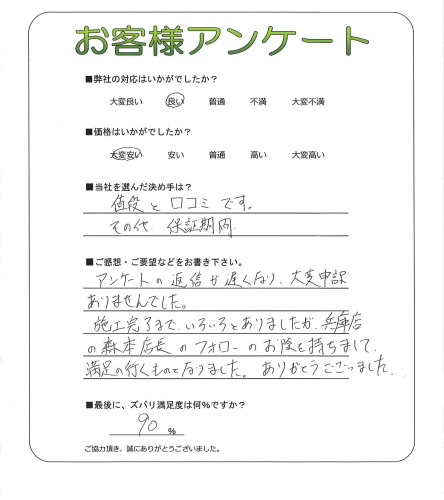 お客様アンケート
■弊社の対応はいかがでしたか？
大変良い 良い 普通 不満 大変不満
■価格はいかがでしたか？
大変安い 安い 普通 高い 大変高い
■当社を選んだ決め手は？
値段と口コミです。
その他 保証期間
■ご感想・ご要望などをお書き下さい。
アンケートの返信が遅くなり、大変申訳
ありませんでした。
施工完了まで、いろいろとありましたが、兵庫店
の森本店長のフォローのお陰を持ちまして、
満足の行くものとなりました。ありがとうございました。
■最後に、ズバリ満足度は何％ですか？
90 ％
ご協力頂き、誠にありがとうございました。